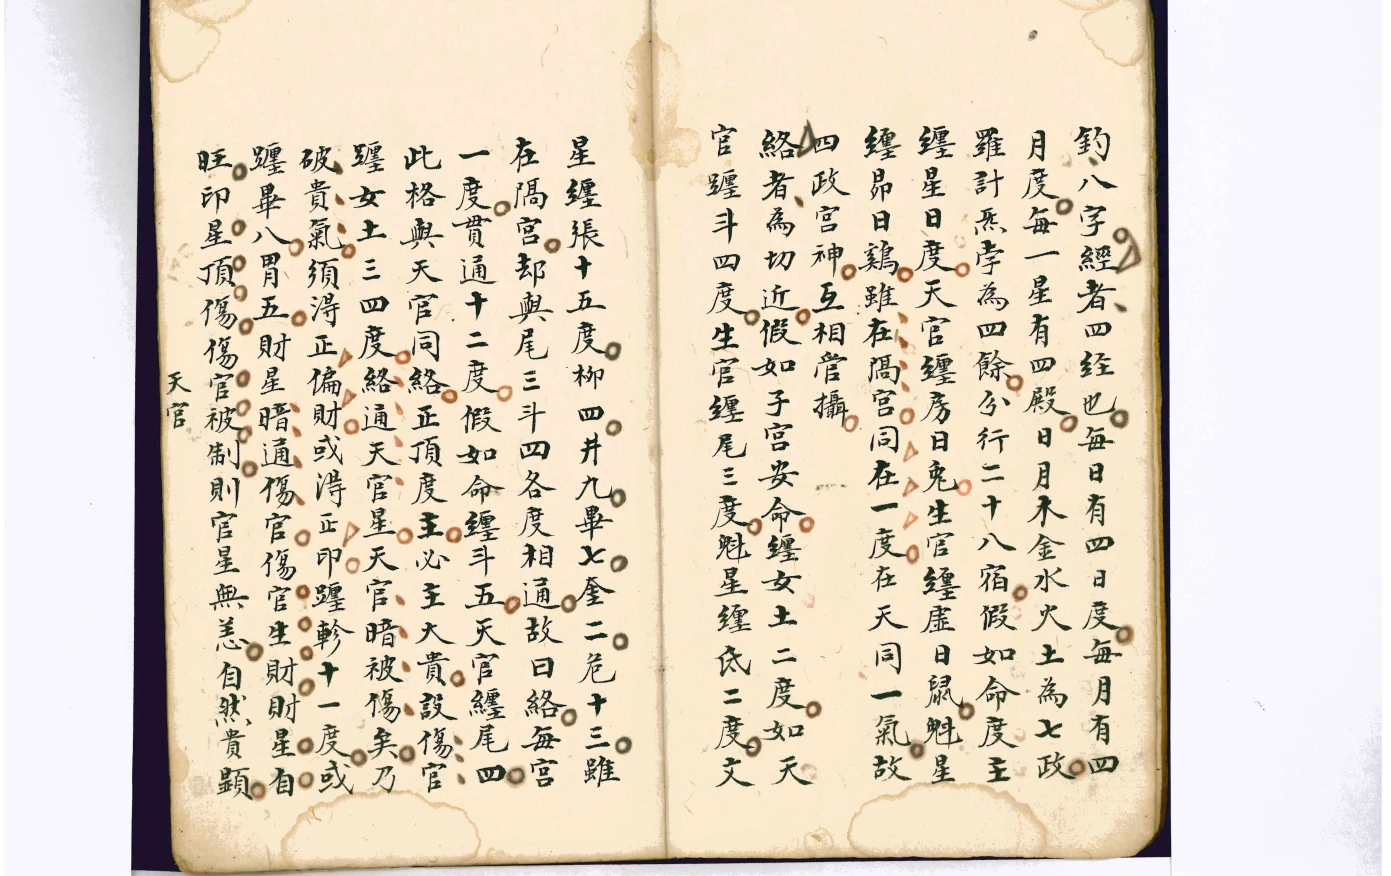 釣八字經者四经也每日有四日度每月有四
月度每一星有四殿日月木金水火土為七政
羅計炁孛為四餘分行二十八宿假如命度主
纏星日度天官纏房日兎生官纏虛日鼠魁星
纏昴日鷄雖在隔宮同在一度在天同一氣故
四政宮神互相管攝
絡者為切近假如子宮安命纏女土二度如天
官躔斗四度生官纏尾三度魁星纏氐二度文
星纏張十五度柳四井九畢七奎二危十三雖
在隔宮却與尾三斗四各度相通故曰絡每宮
一度貫通十二度假如命纏斗五天官纏尾四
此格與天官同絡正頂度主必主大貴設傷官
躔女土三四度絡通天官星天官暗被傷矣乃
破貴氣須淂正偏財或淂正印躔軫十一度或
躔畢八胃五財星暗通傷官傷官生財財星自
旺印星頂傷傷官被制則官星無恙自然貴顕
天官